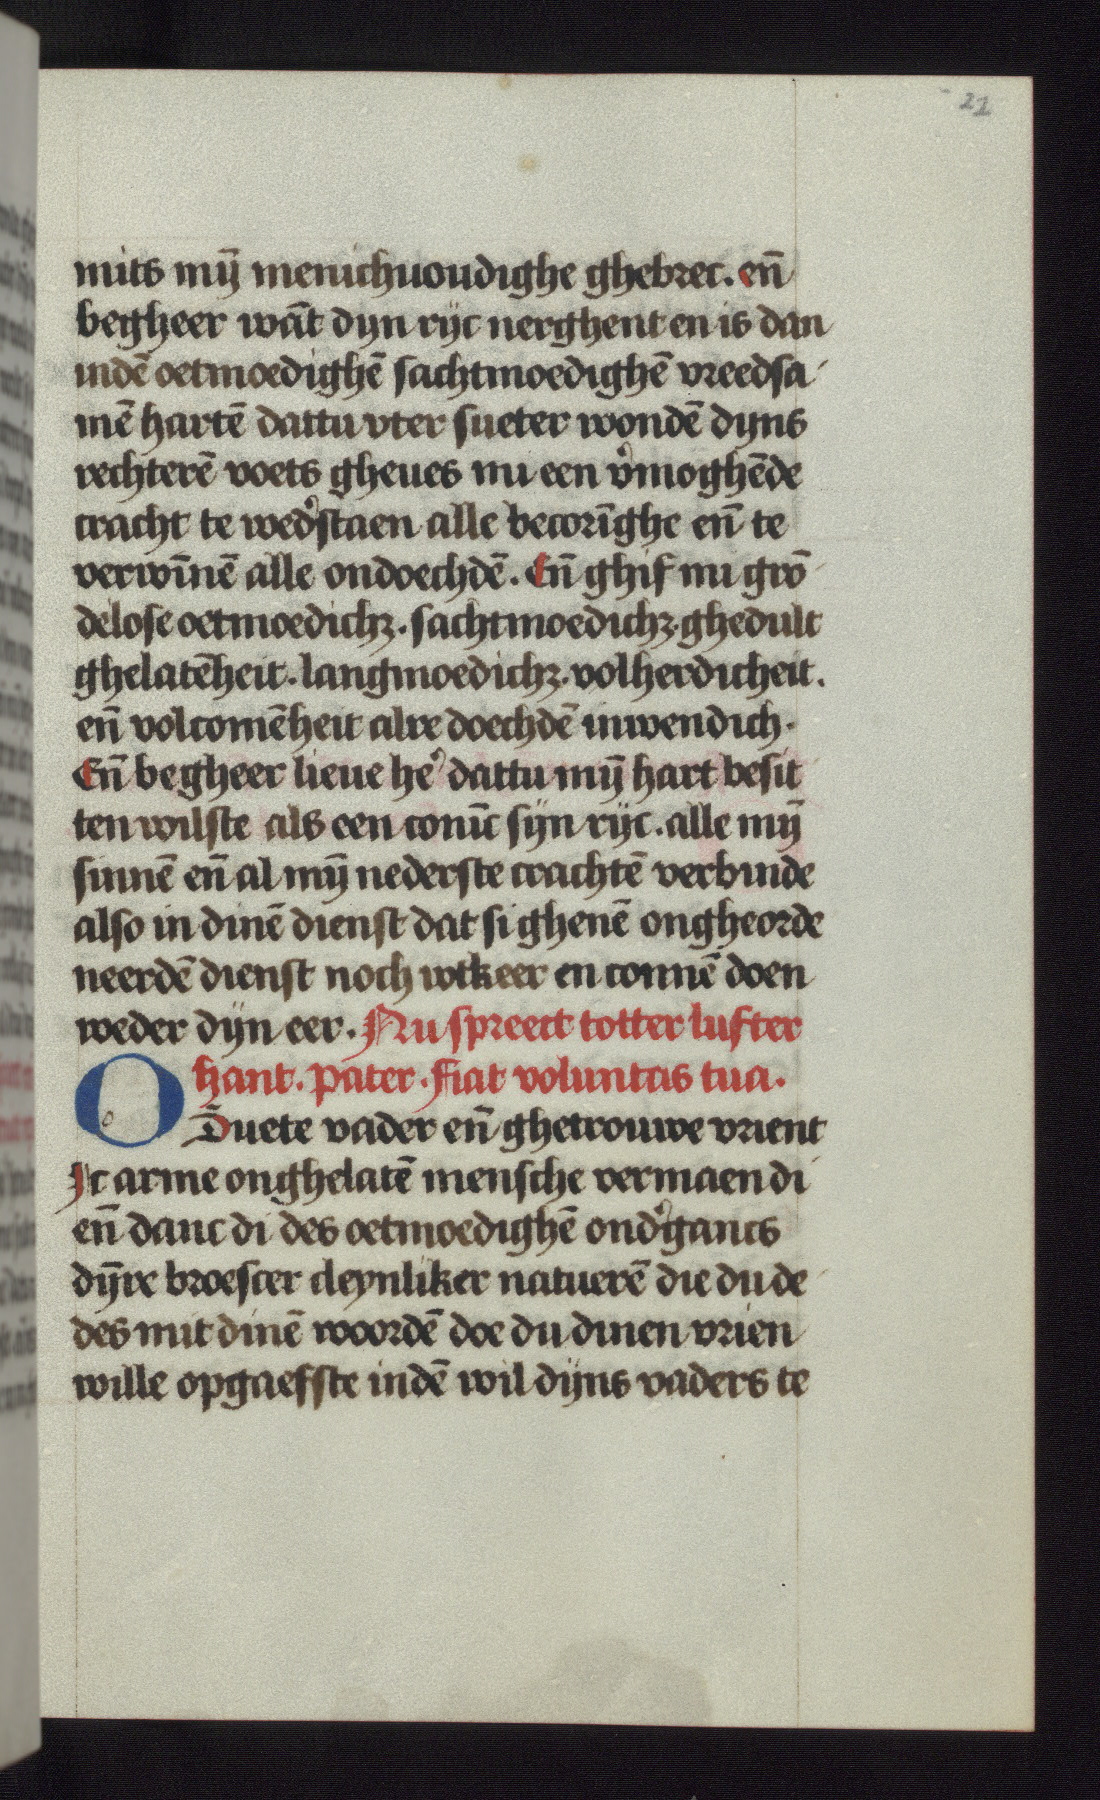 21
mits mȳ menichuoudighe ghebrec. en̄
begheer wāt dyn ryc nerghent en is dan
indē oetmoedighē sachtmoedighē vreedsa
mē hartē dattu vter sueter wondē dyns
rechterē voets gheues mi een v̾moghēde
cracht te wed̾staen alle becorīghe en̄ te
verwīnē alle ondoechdē. En̄ ghif mi grō
delose oetmoedichꝫ. sachtmoedichꝫ. ghedult
ghelatēheit. langmoedichꝫ. volherdicheit.
en̄ volcomēheit alre doechdē inwendich.
En̄ begheer lieue he̾ dattu mȳ hart besit
ten wilste als een conīc sÿn ryc. alle mȳ
sinnē en̄ al mȳ nederste crachtē verbinde
also in dinē dienst dat si ghenē ongheorde
neerdē dienst noch wtkeer en connē doen
weder dÿn eer. Nu spreect totter lufter
hant. Pater. Fiat voluntas tua.
O Suete vader en̄ ghetrouwe vrient
Ic arme onghelatē mensche vermaen di
en̄ danc di des oetmoedighē ond̾gancs
dȳre broescer cleynliker natuerē die du de
des mit dinē woordē doe du dinen vrien
wille opgaefste indē wil dÿns vaders te